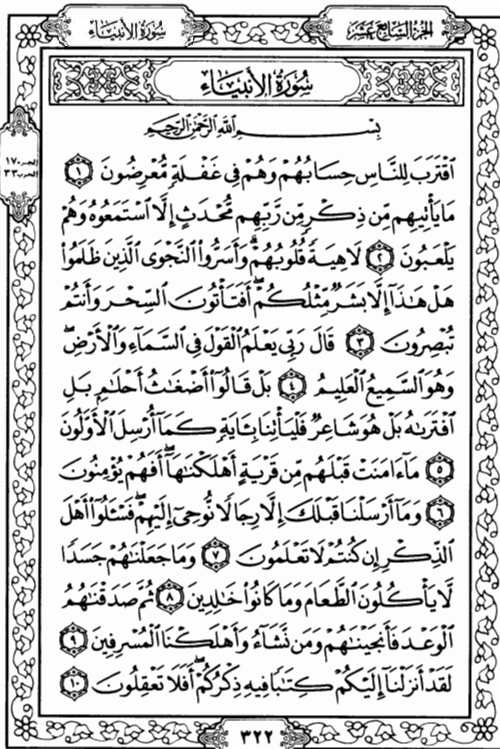 الجزء السابع عشر
سورة الأنبياء
سُورَةُ الأَنبِيَاءِ
بِسْمِ اللَّهِ الرَّحْمَٰنِ الرَّحِيمِ
الجزء ١٧
الحزب ٣٣
ٱقْتَرَبَ لِلنَّاسِ حِسَابُهُمْ وَهُمْ فِي غَفْلَةٍ مُّعْرِضُونَ ١
مَا يَأْتِيهِم مِّن ذِكْرٍ مِّن رَّبِّهِم مُّحْدَثٍ إِلَّا ٱسْتَمَعُوهُ وَهُمْ
يَلْعَبُونَ ٢ لَاهِيَةً قُلُوبُهُمْ ۗ وَأَسَرُّوا۟ ٱلنَّجْوَى ٱلَّذِينَ ظَلَمُوا۟
هَلْ هَـٰذَآ إِلَّا بَشَرٌ مِّثْلُكُمْ ۖ أَفَتَأْتُونَ ٱلسِّحْرَ وَأَنتُمْ
تُبْصِرُونَ ٣ قَالَ رَبِّي يَعْلَمُ ٱلْقَوْلَ فِي ٱلسَّمَآءِ وَٱلْأَرْضِ ۖ
وَهُوَ ٱلسَّمِيعُ ٱلْعَلِيمُ ٤ بَلْ قَالُوٓا۟ أَضْغَـٰثُ أَحْلَـٰمٍ بَلِ
ٱفْتَرَىٰهُ بَلْ هُوَ شَاعِرٌ فَلْيَأْتِنَا بِـَٔايَةٍ كَمَآ أُرْسِلَ ٱلْأَوَّلُونَ
٥ مَآ ءَامَنَتْ قَبْلَهُم مِّن قَرْيَةٍ أَهْلَكْنَـٰهَآ ۖ أَفَهُمْ يُؤْمِنُونَ
٦ وَمَآ أَرْسَلْنَا قَبْلَكَ إِلَّا رِجَالًا نُّوحِىٓ إِلَيْهِمْ ۖ فَسْـَٔلُوٓا۟ أَهْلَ
ٱلذِّكْرِ إِن كُنتُمْ لَا تَعْلَمُونَ ٧ وَمَا جَعَلْنَـٰهُمْ جَسَدًا
لَّا يَأْكُلُونَ ٱلطَّعَامَ وَمَا كَانُوا۟ خَـٰلِدِينَ ٨ ثُمَّ صَدَقْنَـٰهُمُ
ٱلْوَعْدَ فَأَنجَيْنَـٰهُمْ وَمَن نَّشَآءُ وَأَهْلَكْنَا ٱلْمُسْرِفِينَ ٩
لَقَدْ أَنزَلْنَآ إِلَيْكُمْ كِتَـٰبًا فِيهِ ذِكْرُكُمْ ۖ أَفَلَا تَعْقِلُونَ ١٠
٣٢٢